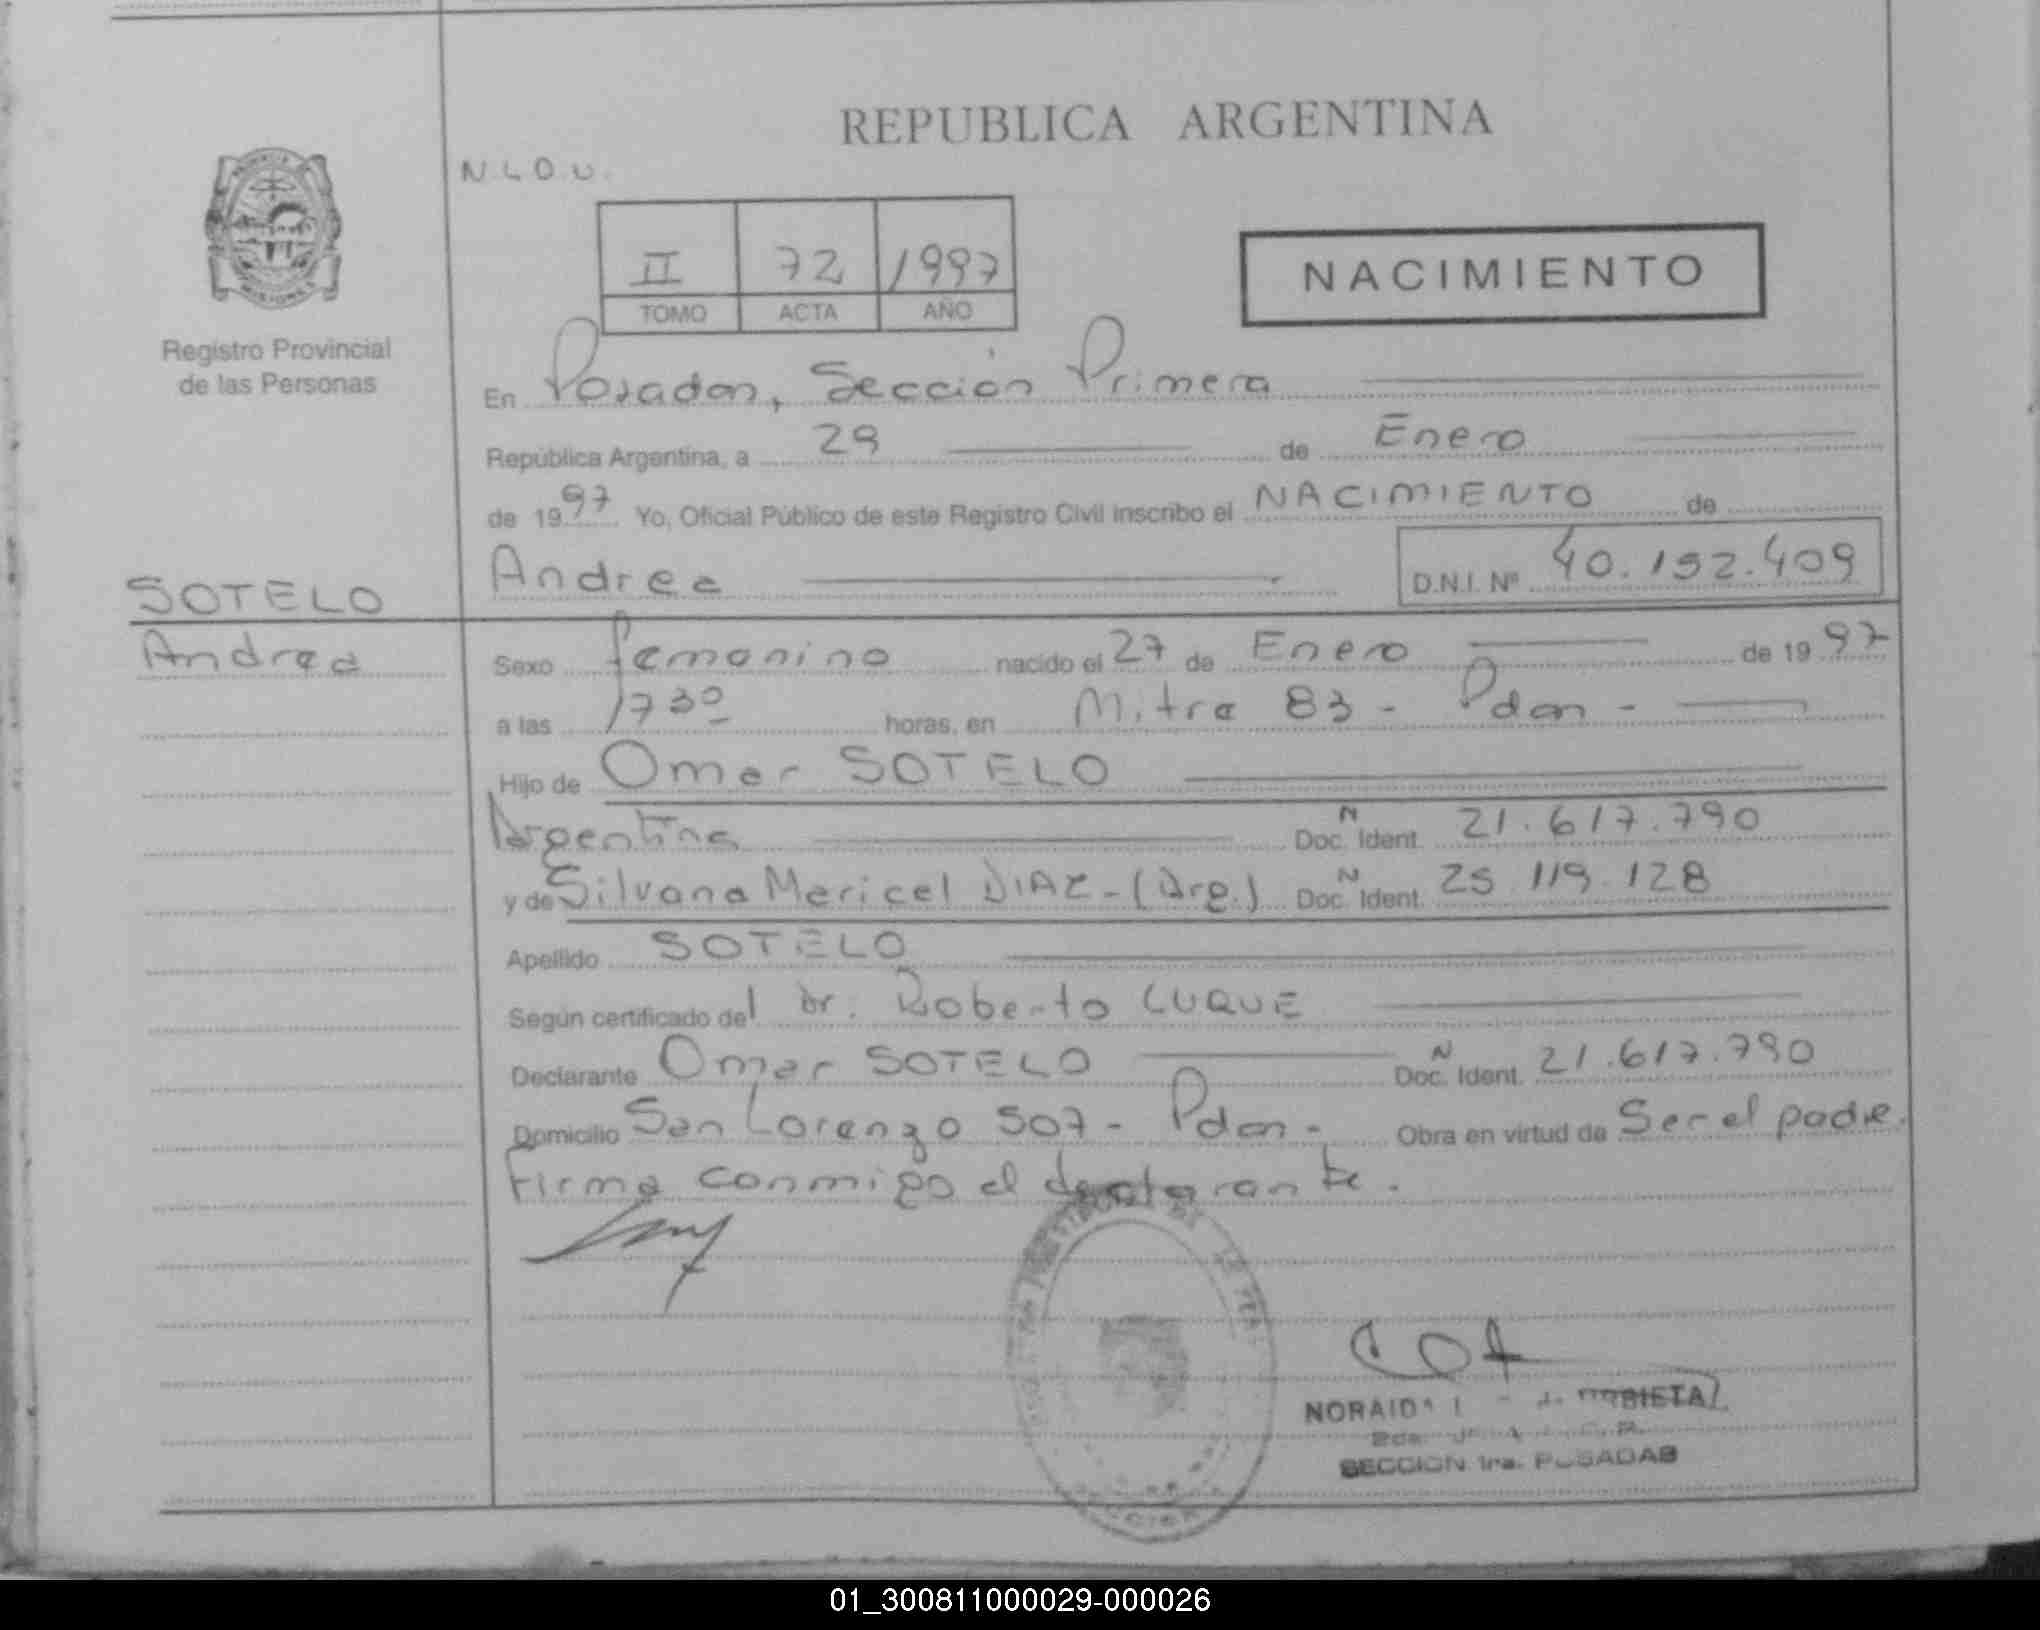 REPUBLICA ARGENTINA
N.L.O.U.
II 72 1997
TOMO ACTA AÑO
NACIMIENTO
MISIONES
Registro Provincial
de las Personas
En Posadas, Sección Primera
República Argentina, a 29 de Enero
de 1997 Yo, Oficial Público de este Registro Civil inscribo el NACIMIENTO de
Andrea D.N.I. Nº 40.192.409
SOTELO
Andrea
Sexo femenino nacido el 27 de Enero de 1997
a las 1730 horas, en Mitre 83 - Pdas -
Hijo de Omar SOTELO
Argentina Doc. N Ident. 21.617.790
y de Silvana Maricel DIAZ - (Arg.) Doc. N Ident. 25.119.128
Apellido SOTELO
Según certificado del dr. Roberto LUQUE
Declarante Omar SOTELO Doc. N Ident. 21.617.790
Domicilio San Lorenzo 507 - Pdas - Obra en virtud de Ser el padre.
Firma conmigo el declarante.
NORAIDA
SECCION 1ra. POSADAS
01_300811000029-000026